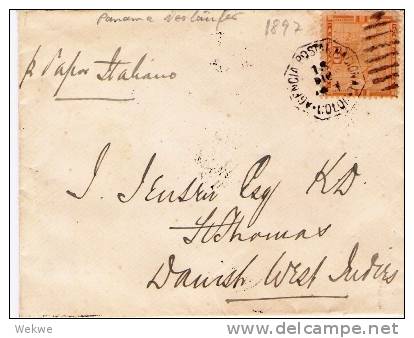 Panama Vorläufer
1897
p Vapor Italiano
AGENCIA POSTAL NACIONAL
COLON
J. Jensen Esq KD
St Thomas
Danish West Indies
Wekwe
www.delcampe.net